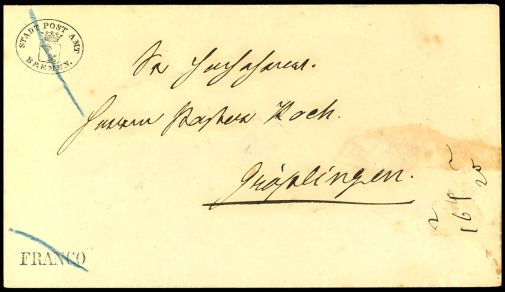 STADT POST AMT
BREMEN.
Sr Hochehrwn.
Herrn Pastor Koch.
Gröplingen.
FRANCO